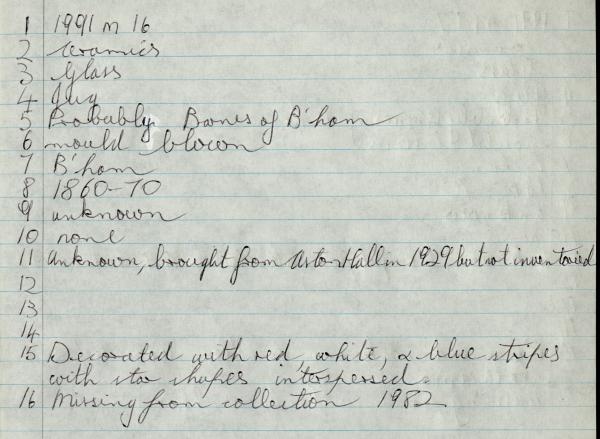 1 1991 M 16
2 ceramics
3 Glass
4 Jug
5 Probably Barnes of B'ham
6 mould blown
7 B'ham
8 1860-70
9 unknown
10 none
11 unknown, brought from Aston Hall in 1929 but not inventoried
12
13
14
15 Decorated with red, white, & blue stripes
with star shapes interspersed.
16 Missing from collection 1982